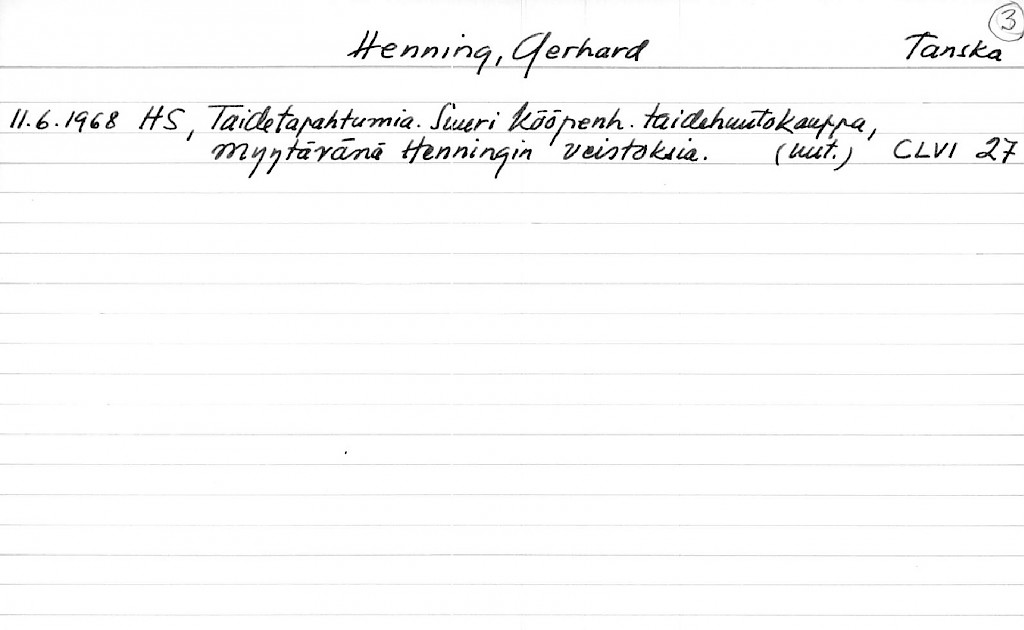 3
Henning, Gerhard Tanska
11.6.1968 HS, Taidetapahtumia. Suuri Kööpenh. taidehuutokauppa,
myytävänä Henningin veistoksia. (uut.) CLVI 27